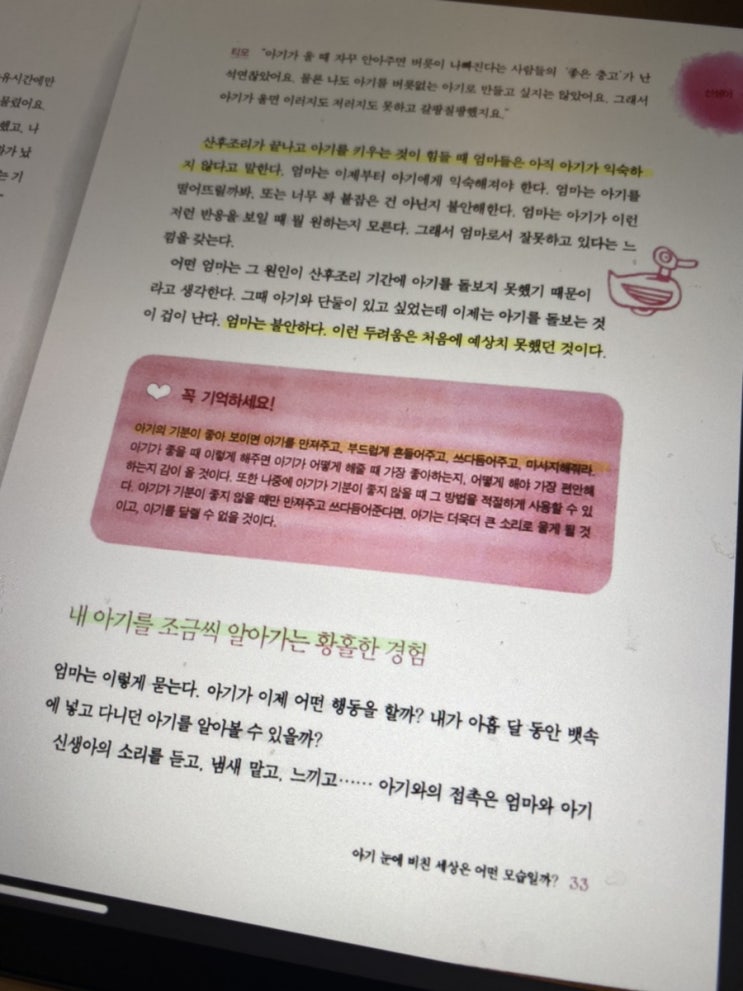 유시간에만
물렸어요.
했고, 나
티모 "아기가 울 때 자꾸 안아주면 버릇이 나빠진다는 사람들의 '좋은 충고'가 난
석연찮았어요. 물론 나도 아기를 버릇없는 아기로 만들고 싶지는 않았어요. 그래서
아기가 울면 이러지도 저러지도 못하고 갈팡질팡했지요."
신생아
산후조리가 끝나고 아기를 키우는 것이 힘들 때 엄마들은 아직 아기가 익숙하
지 않다고 말한다. 엄마는 이제부터 아기에게 익숙해져야 한다. 엄마는 아기를
떨어뜨릴까봐, 또는 너무 꽉 붙잡은 건 아닌지 불안해한다. 엄마는 아기가 이런
저런 반응을 보일 때 뭘 원하는지 모른다. 그래서 엄마로서 잘못하고 있다는 느
낌을 갖는다.
어떤 엄마는 그 원인이 산후조리 기간에 아기를 돌보지 못했기 때문이
라고 생각한다. 그때 아기와 단둘이 있고 싶었는데 이제는 아기를 돌보는 것
이 겁이 난다. 엄마는 불안하다. 이런 두려움은 처음에 예상치 못했던 것이다.
꼭 기억하세요!
아기의 기분이 좋아 보이면 아기를 만져주고, 부드럽게 흔들어주고, 쓰다듬어주고, 마사지해줘라.
아기가 좋을 때 이렇게 해주면 아기가 어떻게 해줄 때 가장 좋아하는지, 어떻게 해야 가장 편안해
하는지 감이 올 것이다. 또한 나중에 아기가 기분이 좋지 않을 때 그 방법을 적절하게 사용할 수 있
다. 아기가 기분이 좋지 않을 때만 만져주고 쓰다듬어준다면, 아기는 더욱더 큰 소리로 울게 될 것
이고, 아기를 달랠 수 없을 것이다.
내 아기를 조금씩 알아가는 황홀한 경험
엄마는 이렇게 묻는다. 아기가 이제 어떤 행동을 할까? 내가 아홉 달 동안 뱃속
에 넣고 다니던 아기를 알아볼 수 있을까?
신생아의 소리를 듣고, 냄새 맡고, 느끼고…… 아기와의 접촉은 엄마와 아기
아기 눈에 비친 세상은 어떤 모습일까? 33